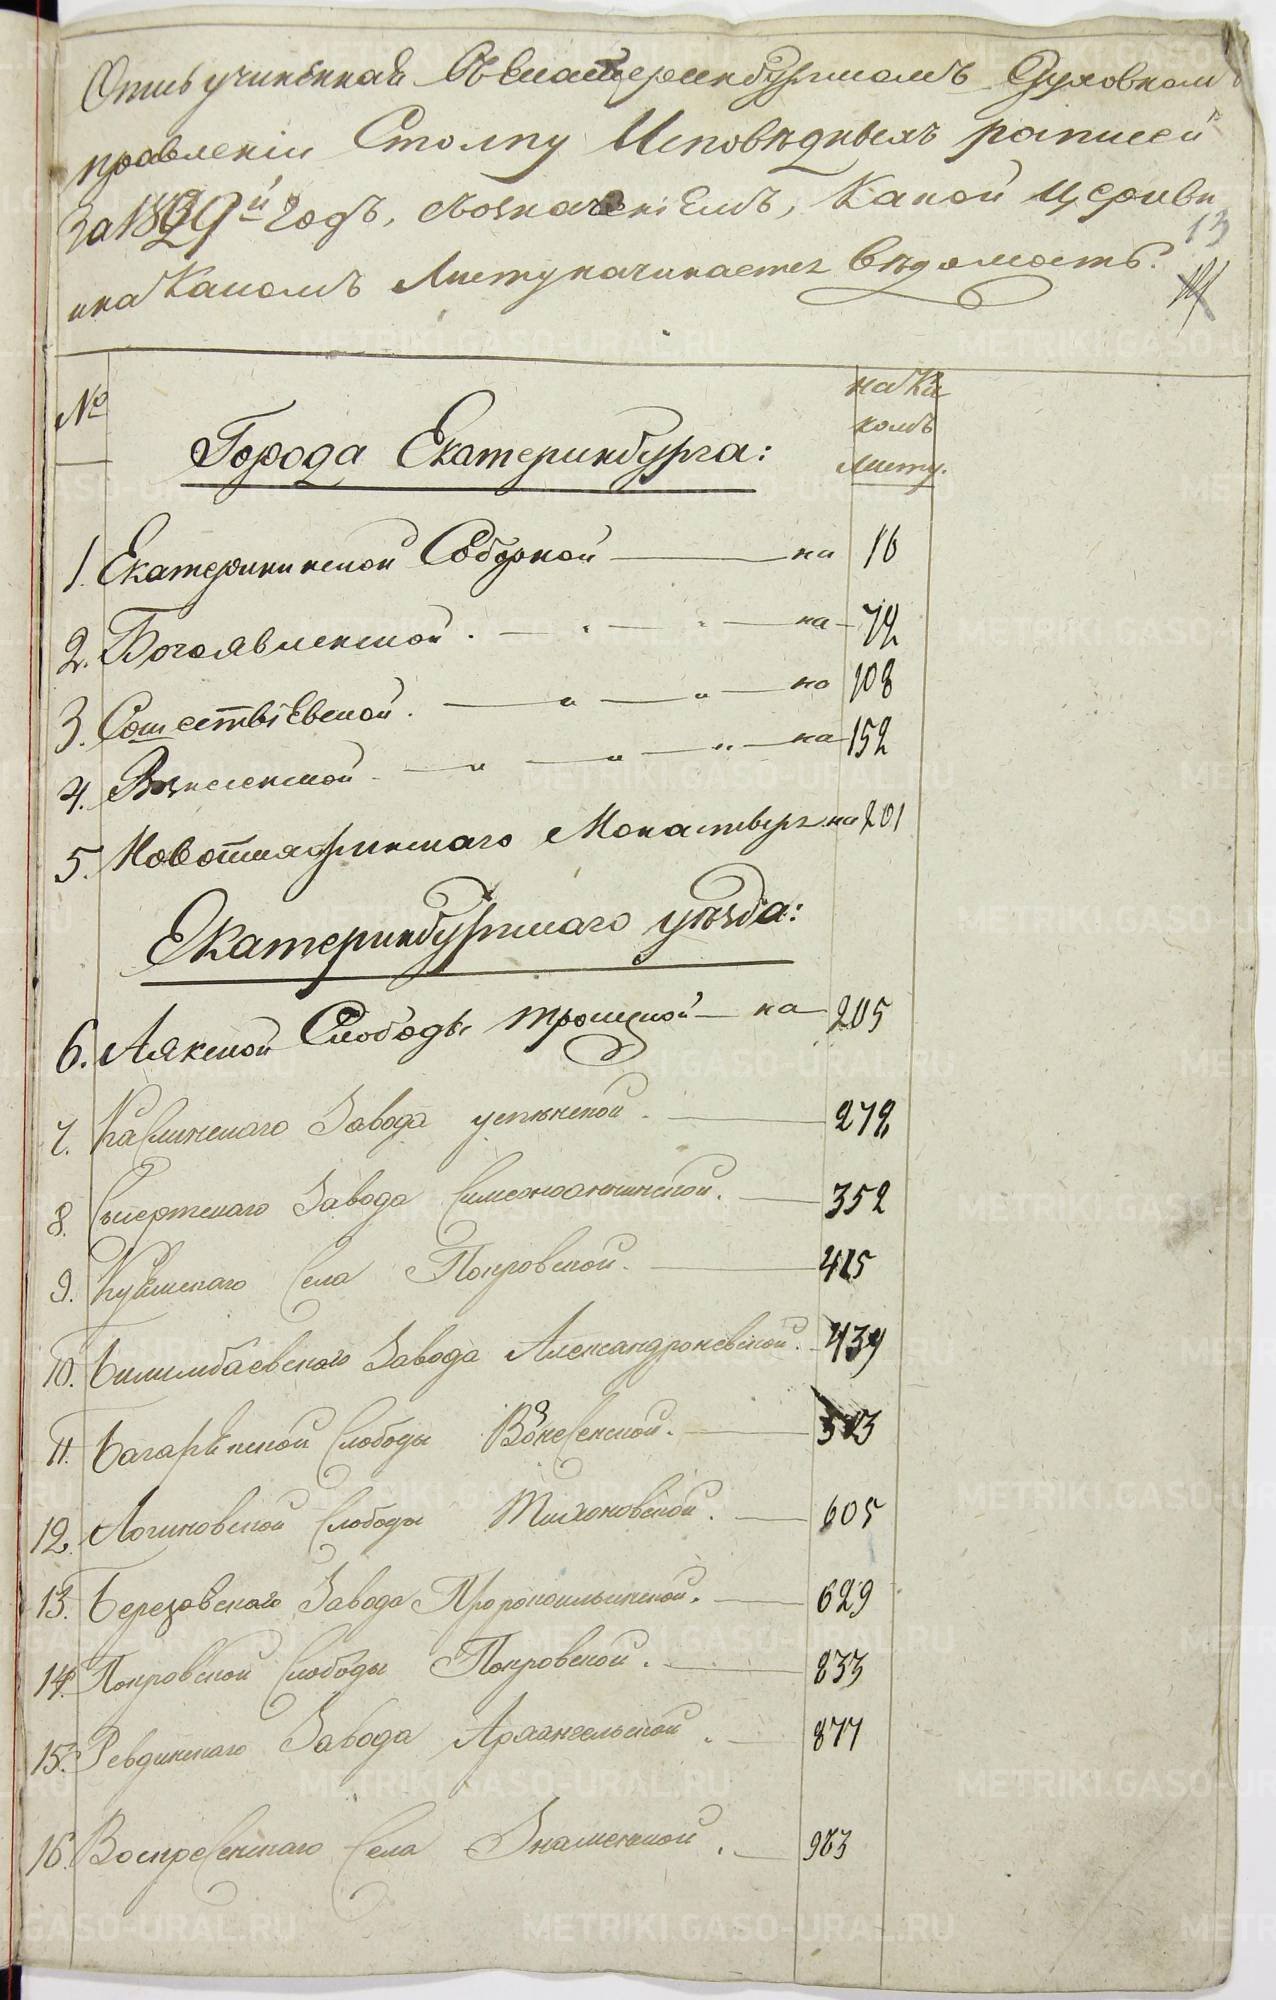 Опись учиненная въ Екатеринбургскомъ Духовномъ
правленіи Столпу Исповѣдныхъ росписей
за 1829й годъ, с означеніемъ, какой церкви
и на какомъ листу начинается вѣдомость.
13
№
на ка
комъ
листу.
Города Екатеринбурга:
1. Екатерининской Соборной — на 16
2. Богоявленской. — на 72
3. Сошествіевской. — на 108
4. Вознесенской — на 152
5. Новотихвинскаго Монастыря на 201
Екатеринбургскаго уѣзда:
6. Аякской Слободы троицкой — на 205
7. Каслинскаго Завода успѣнской. — 272
8. Сысертскаго Завода Симеоноаннинской. — 352
9. Куяшскаго Села Покровской. — 415
10. Билимбаевскаго Завода Александроневской. 439
11. Багаряцкой Слободы Вознесенской. — 513
12. Логиновской Слободы Тихоновской. — 605
13. Березовскаго Завода Пророкоильинской. — 629
14. Покровской Слободы Покровской. — 833
15. Ревдинскаго Завода Архангельской. — 877
16. Воскресенскаго Села Знаменской. — 963
METRIKI.GASO-URAL.RU